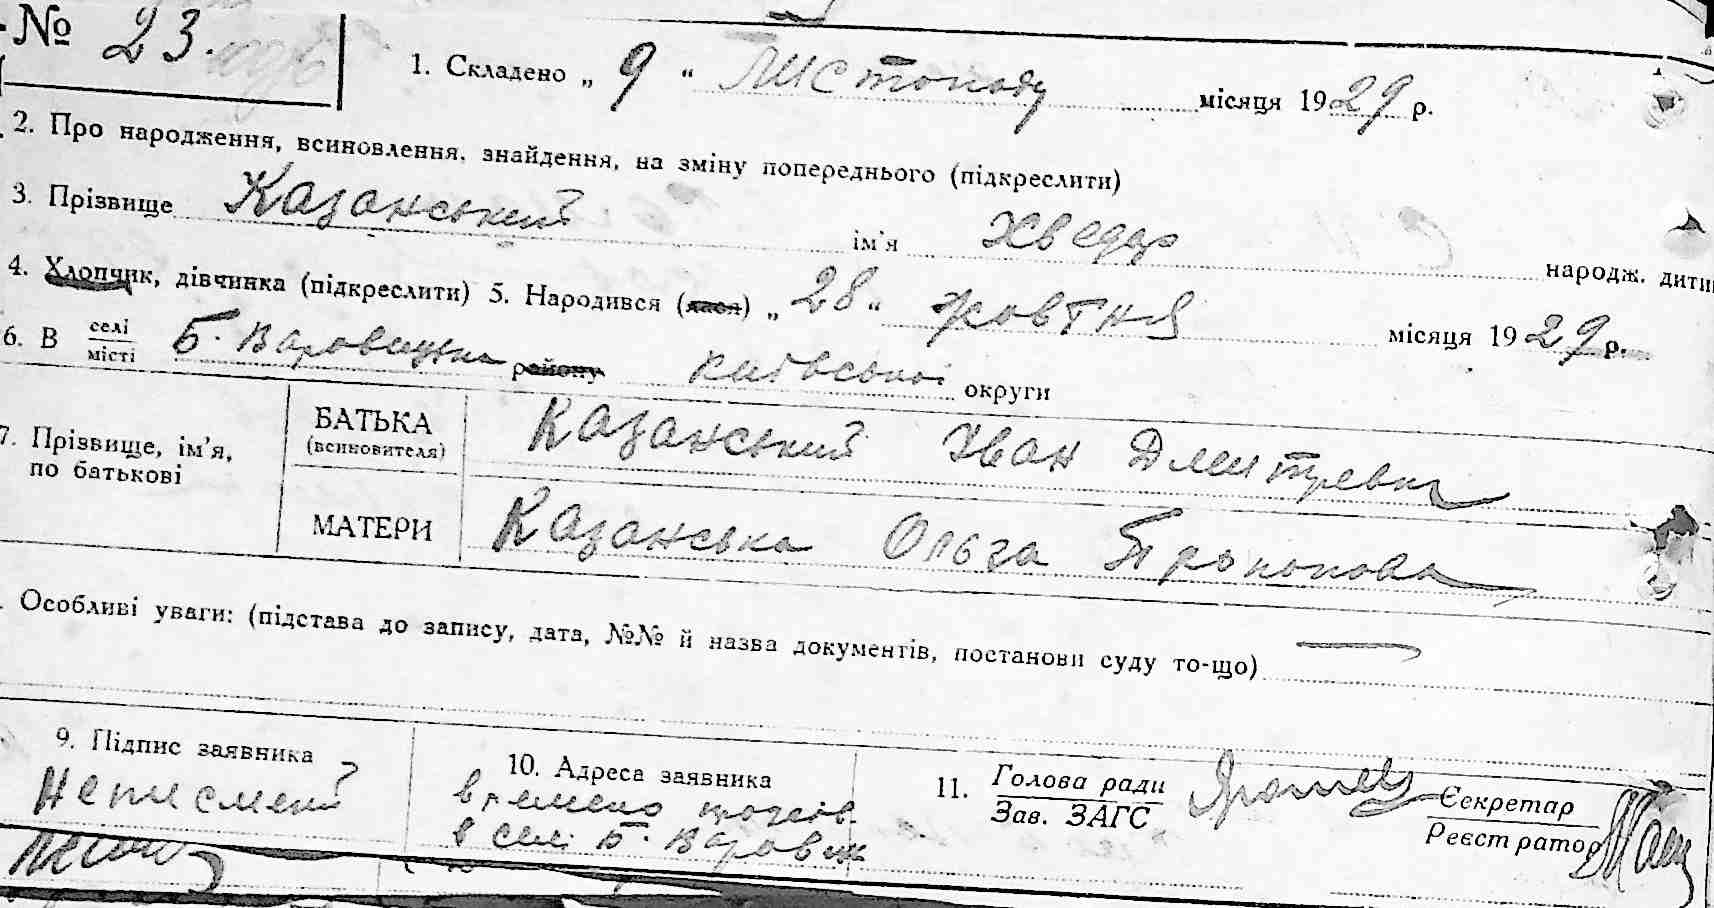 № 23.
1. Складено „ 9 “ Листопаду місяця 1929 р.
2. Про народження, всиновлення, знайдення, на зміну попереднього (підкреслити)
3. Прізвище Казанський ім'я Хведор народж. дити
4. Хлопчик, дівчинка (підкреслити) 5. Народився (лася) „ 28 “ жовтня місяця 1929 р.
6. В селі місті Б. Варовицька району Київської округи
7. Прізвище, ім'я, по батькові
БАТЬКА (всиновителя) Казанський Іван Дмитревич
МАТЕРИ Казанська Ольга Прокопова
Особливі уваги: (підстава до запису, дата, №№ й назва документів, постанови суду то-що)
9. Підпис заявника
Неписмений
10. Адреса заявника
времено
в селі Б. Варовичи
11. Голова ради
Зав. ЗАГС
Секретар
Реєстратор